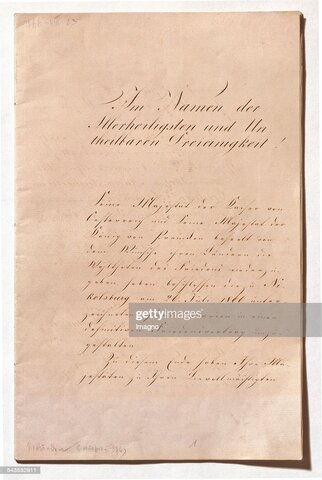 Im Namen der
Allerheiligsten und Un
theilbaren Dreieinigkeit!
Seine Majestät der Kaiser von
Oesterreich und Seine Majestät der
König von Preussen beseelt von
dem Wunsche Ihren Ländern die
Wohlthaten des Friedens wiederzu
geben haben beschlossen die zu Ni
kolsburg am 26 Juli 1866 unter
zeichneten Präliminarien in einen
definitiven Friedensvertrag umzu
gestalten
Zu diesem Ende haben Ihre Ma
jestäten zu Ihren Bevollmächtigten
gettyimages
Credit: Imagno
543552911